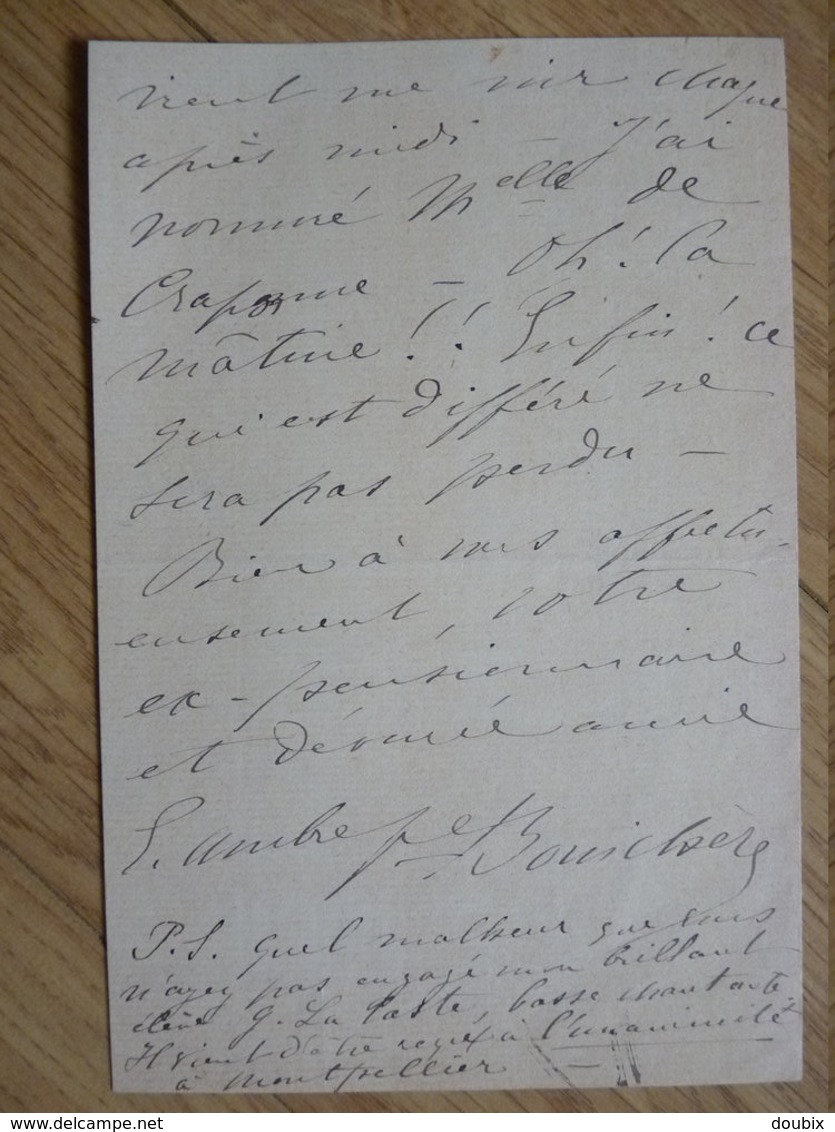 vient me voir chaque
après midi — J'ai
nommé Melle de
Craponne — Oh! la
mâtine!! Enfin! ce
qui est différé ne
sera pas perdu —
Bien à vous affectu-
eusement, votre
ex-pensionnaire
et dévouée amie
E. Ambre fe Bouichère
P.S. quel malheur que vous
n'ayez pas engagé mon brillant
élève G. La Taste, basse chantante
Il vient d'être reçu à l'unanimité
à Montpellier —
delcampe.net
doubix